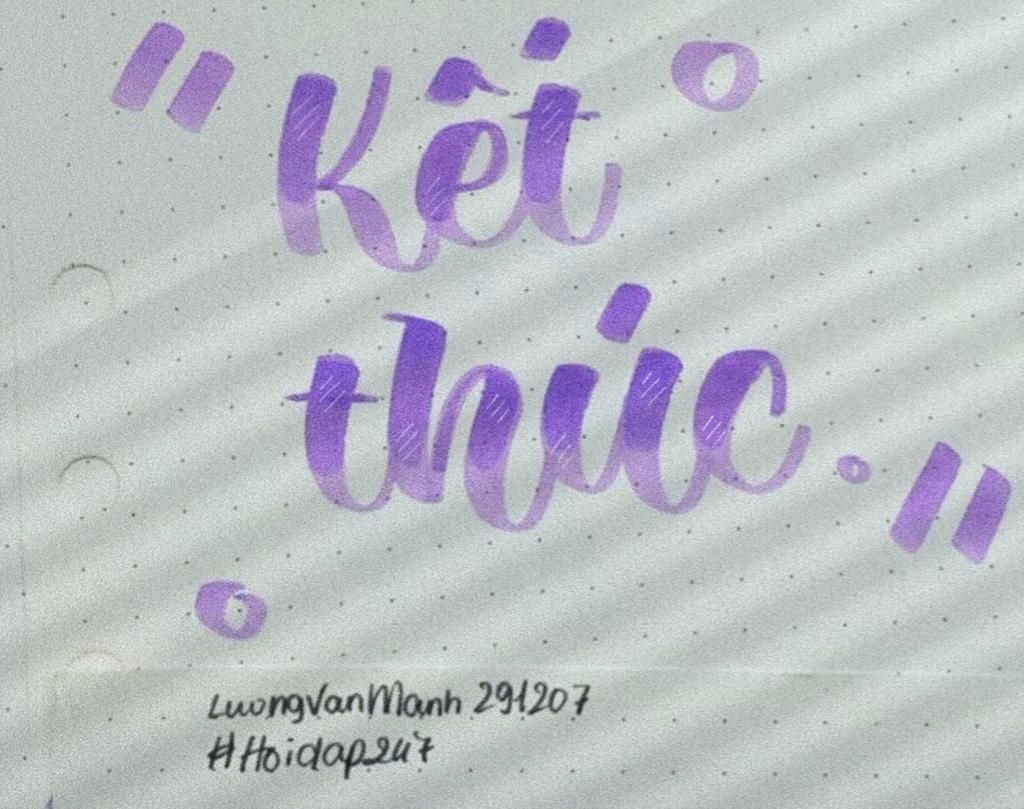 "Kết
thúc."
LuongVanManh 291207
#Hoidap247